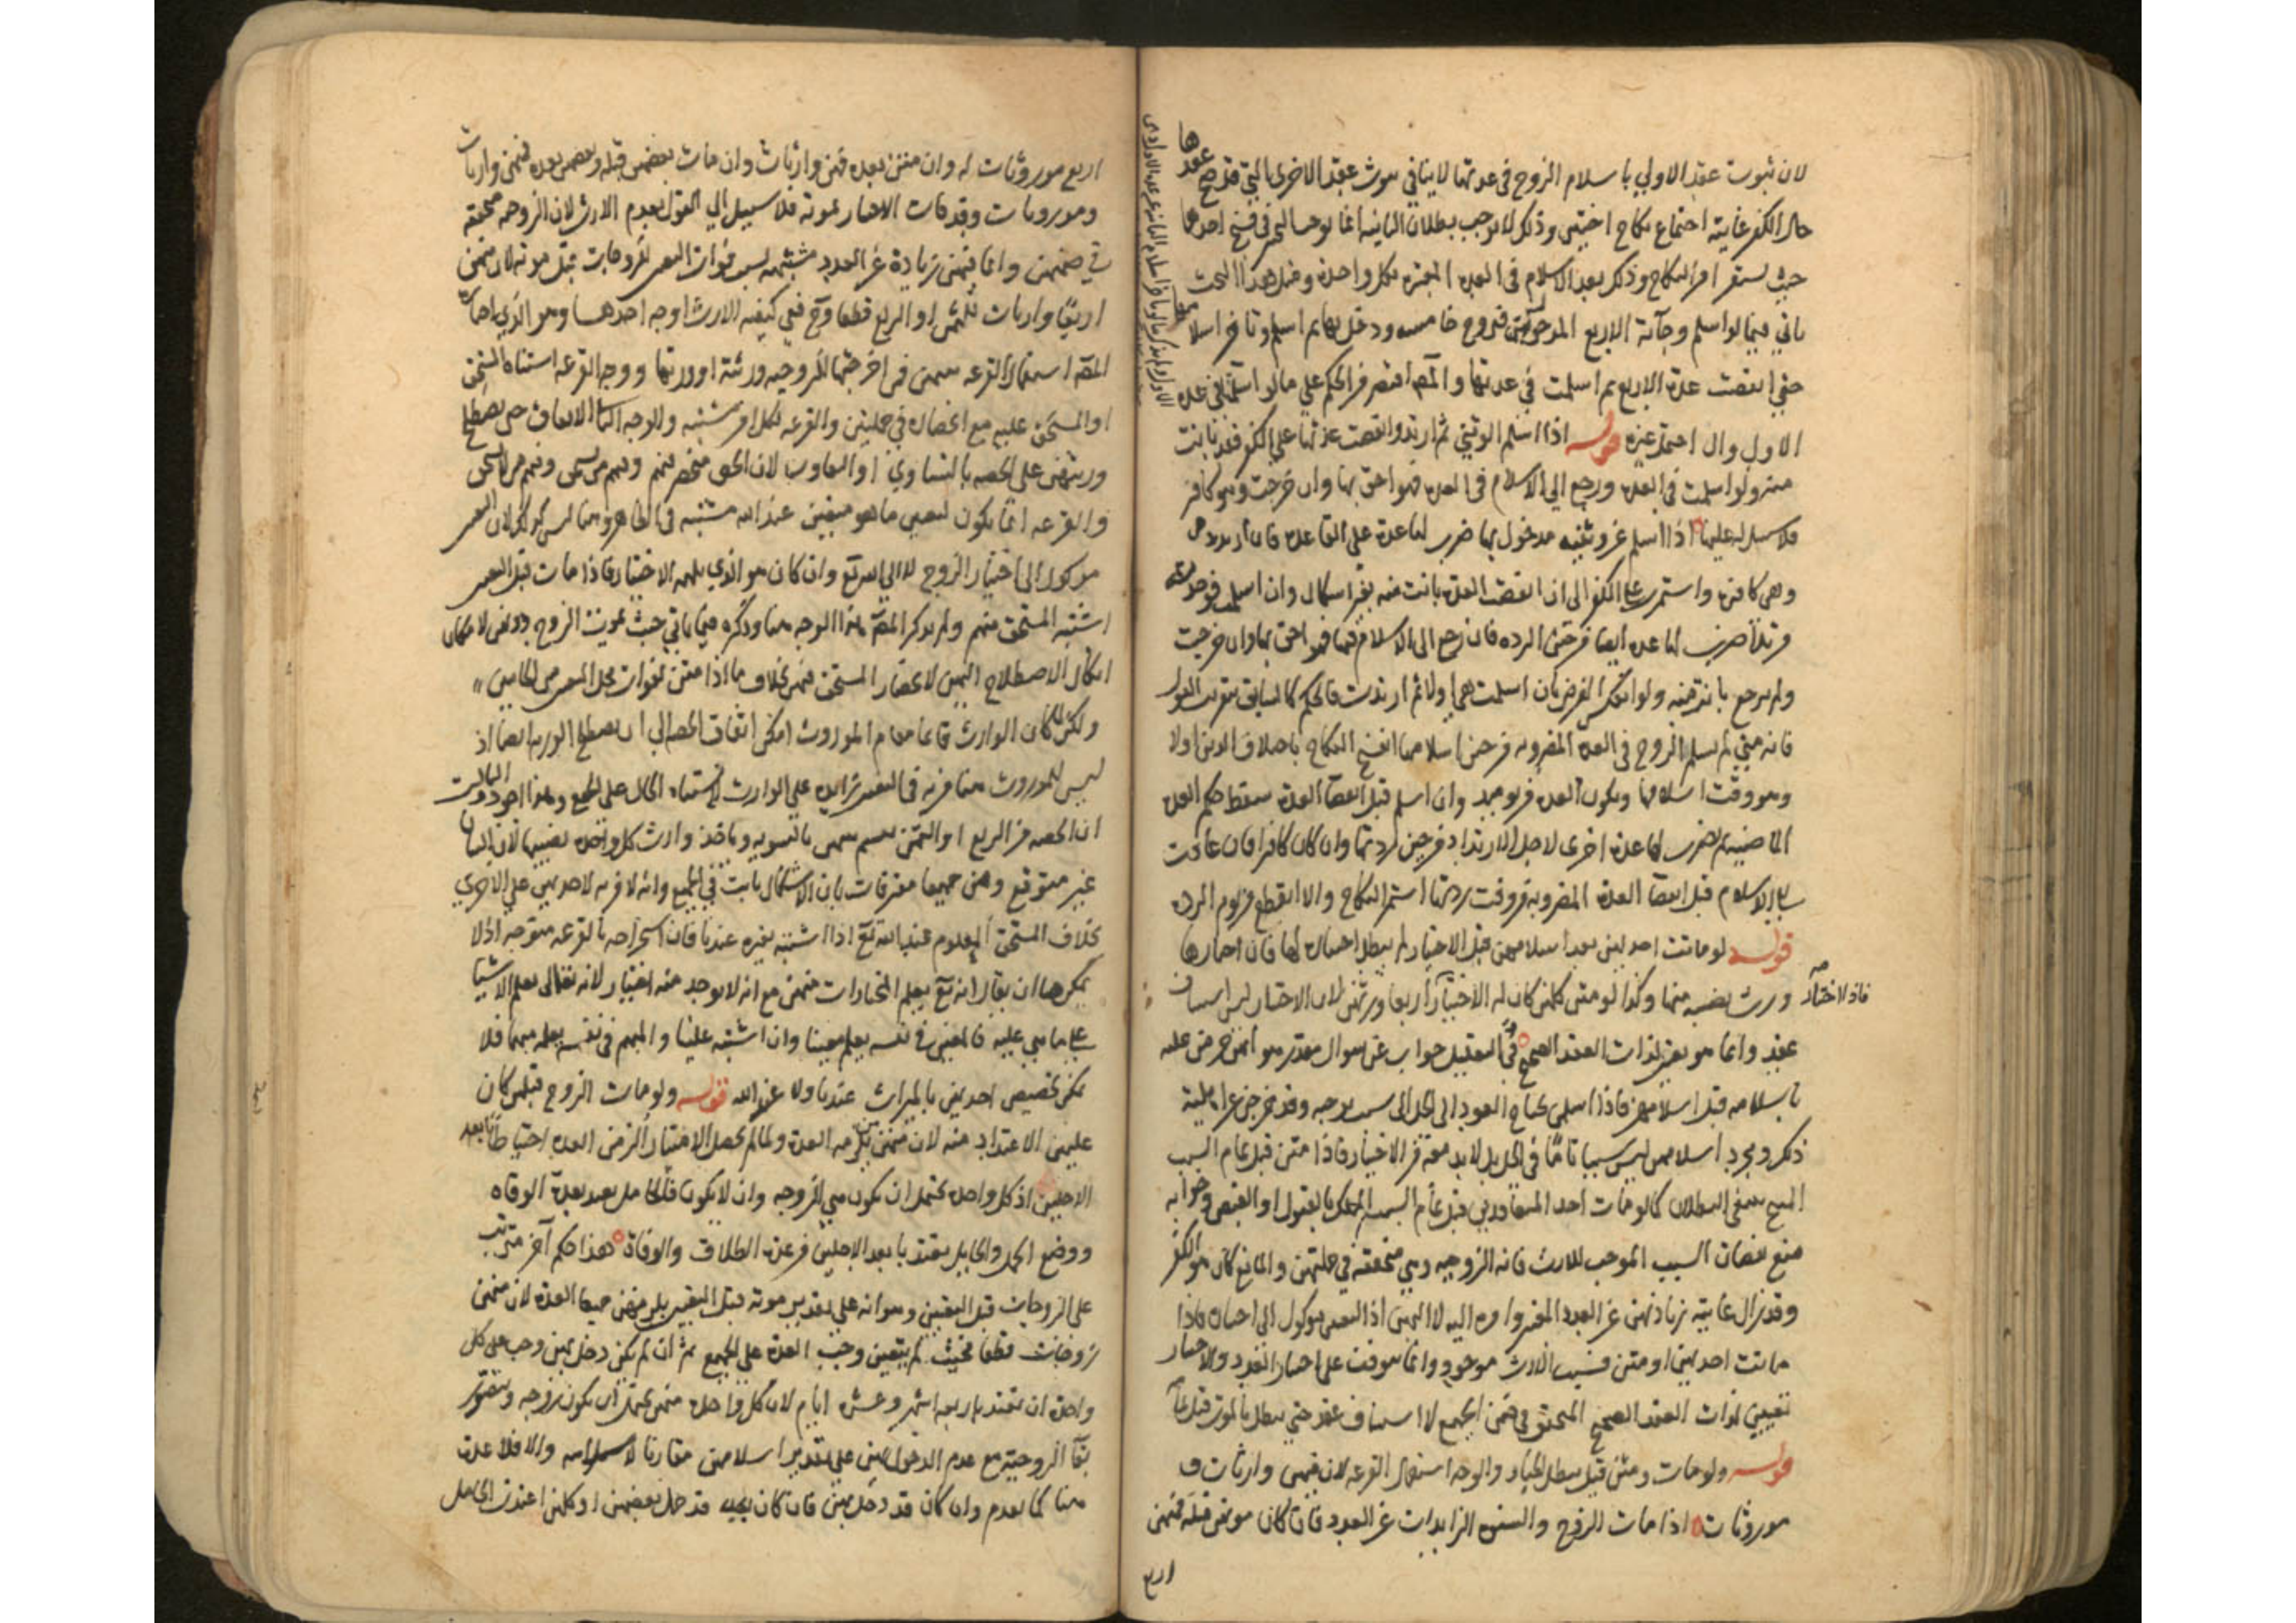 لان ثبوت عقد الاولي باسلام الزوج في عدتها لا ينافي ثبوت عقد الاخرى التي قد صح عقدها
حال الكفر غايته اجتماع نكاح اختين وذلك لا يوجب بطلان الثانيه انما يوجب التخير في فسخ احدهما
حيث يستقر امر النكاح وذلك بعد الاسلام في العدة المعتبره لكل واحدة ومثل هذا البحث
ياتي فيما لو اسلم وحآله الاربع فتزوج خامسه ودخل بها ثم اسلم وتاخر اسلامها
حتي انقضت عدة الاربع ثم اسلمت في عدتها والمص اقتصر في الحكم علي مالو اسلمت في عدة
الاول وال احتمل غيره قوله اذا اسلم الوثني ثم ارتد وانقضت عدتها علي الكفر فقد بانت
منه ولو اسلمت في العدة ورجع الي الاسلام في العدة فهو احق بها وان خرجت وهو كافر
فلا سبيل له عليها اذا اسلم عن وثنيه مدخول بها ضرب لها عدة على القاعدة فان ارتد
وهي كافرة واستمرت على الكفر الى ان انقضت العدة بانت منه بغير اشكال وان اسلمت
ضرب لها عدة ايضا من حين الرده فان رجع الى الاسلام فيها فهو احق بها وان خرجت
ولم يرجع بانت منه ولو انعكس الفرض بان اسلمت هي اولا ثم ارتدت فالحكم كالسابق
فانه متي لم يسلم الزوج في العدة المضروبه من حين اسلامها انفسخ النكاح باختلاف الدين اولا
وهو وقت اسلامها ويكون العدة من يومئذ وان اسلم قبل انقضآ العدة سقط حكم العدة
الماضيه ثم يضرب لها عدة اخرى لاجل الارتداد من حين ردتها وان كان كافرا فان عادت
الى الاسلام قبل انقضآ العدة المضروبة من وقت ردتها استمر النكاح والا انقطع من يوم الرده
قوله لو ماتت احديهن بعد اسلامهن قبل الاختيار لم يبطل اختياره لها فان اختارها
ورث نصيبه منها وكذا لو متن كلهن كان له الاختيار فاذا اختار اربعا ورثهن لان الاختيار ليس استيناف
عقد وانما هو تعيين لذات العقد الصحيح في التعليل جواب عن سوال مقدر هو انهن حرمن عليه
باسلامه قبل اسلامهن فاذا اسلمن يحتاج العود الى الحل الى سبب يوجبه وقد خرجن عن اهلية
ذلك ومجرد اسلامهن ليس سببا تامّا في الحل بل لابد معه من الاختيار فاذا متن قبل تمام السبب
المبيح بقي البطلان كما لو مات احد المتعاقدين قبل تمام السبب المملك بالقبول او القبض وجوابه
منع نقصان السبب الموجب للارث فانه الزوجيه وهي متحققة في جملتهن والمانع كان هو الكفر
وقد زال غايته زيادتهن عن العدد المعتبر وامره اليه لا اليهن اذ التعيين موكول الى اختياره فاذا
ماتت احديهن او متن فسبب الارث موجود وانما يتوقف على اختيار العدد والاختيار
تعيين لذات العقد الصحيح المتحقق في ضمن الجميع لا استيناف عقد حتي يبطل بالموت قبل تمامه
قوله ولو مات ومتن قيل يبطل الخيار والوجه استعمال القرعه لان فيهن وارثات و
موروثات اذا مات الزوج والنسوة الزايدات عن العدد فان كان موتهن قبله فمنهن
اربع
اربع موروثات له وان متن بعده فمنهن وارثات وان مات بعضهن قبله وبعضهن بعده فمنهن وارثات
وموروثات وقد فات الاختيار بموته فلا سبيل الي القول بعدم الارث لان الزوجيه متحققة
في ضمنهن وانما فيهن زيادة عن العدد مشتبهه بسبب فوات التعيين للزوجات قبل موته لان منهن
اربعًا وارثات للثمن او الربع قطعا وح ففي كيفيه الارث اوجه احدها وهو الذي اختاره
المصّ استعمال القرعه بينهن فمن اخرجتها للزوجيه ورثته او ورثها ووجه القرعه اشتباه المستحق
او المستحق عليه مع انحصاره في جملتين والقرعه لكل امر مشتبه والوجه الثاني الايقاف حتى يصطلح
ورثتهن على الحصه بالتساوي او التفاوت لان الحق منحصر فيهم وفيهم من يستحق وفيهم من لا يستحق
والقرعه انما يكون لتعيين ما هو متعين عند الله مشتبه في الظاهر وهنا ليس كذلك لان التعيين
موكول الى اختيار الزوج لا الى الله تع وان كان هو الذي يلهمه الاختيار فاذا مات قبل التعيين
اشتبه المستحق منهم ولم يذكر المصّ هذا الوجه هنا وذكره فيما ياتي حيث يموت الزوج دونهن لامكان
ايكال الاصطلاح اليهن لانحصار المستحق فيهن بخلاف ما اذا متن لفوات محل التعيين من الجانبين
ولكن لما كان الوارث قائما مقام الموروث امكن ايقاف الحصه الي ان يصطلح الورثه ايضا اذ
ليس للموروث هنا مزيه في التعيين زايده علي الوارث لاشتباه الحال على الجميع وهذا اجود والثالث
ان الحصه من الربع او الثمن تقسم بينهن بالسويه وياخذ وارث كل واحدة نصيبها لان البيان
غير متوقع وهن جميعا معترفات بان الاشكال ثابت في الجميع وانه لا مزيه لاحديهن علي الاخري
بخلاف المستحق المعلوم عند الله تع اذا اشتبه بغيره عندنا فان استخراجه بالقرعه متوجه اذ لا
يمكن هنا ان يقال انه تع يعلم المختارات منهن مع انه لا يوجد منه اختيار لانه تعالى يعلم الاشيآ
على ما هي عليه فالمعين في نفسه يعلمه معينا وان اشتبه علينا والمبهم في نفسه يعلمه مبهما فلا
يمكن تخصيص احديهن بالميراث عندنا ولا عند الله قوله ولو مات الزوج قبلهن كان
عليهن الاعتداد منه لان منهن من تلزمه العدة ولما لم يحصل الاختيار الزمن العدة احتياطا بابعد
الاجلين اذ كل واحدة يحتمل ان يكون هي الزوجه وان لا يكون فالحامل تعتد بعدة الوفاه
ووضع الحمل والحايل تعتد بابعد الاجلين من عدة الطلاق والوفاة هذا حكم آخر مترتب
على الزوجات قبل التعيين وهو انه علي تقدير موته قبل التعيين يلزمهن جميعا العدة لان منهن
زوجات قطعا فحيث لم يتعين وجبت العدة على الجميع ثم ان لم يكن دخل بهن وجب على كل
واحدة ان تعتد باربعه اشهر وعشرة ايام لان كل واحدة منهن يحتمل ان يكون زوجه ويتصور
بقآ الزوجية مع عدم الدخول بهن علي تقدير اسلامهن مقارنا لاسلامه والا فلا عدة
هنا كما تقدم وان كان قد دخل بهن فان كان بحيث قد حمل بعضهن او كلهن اعتدت الحامل